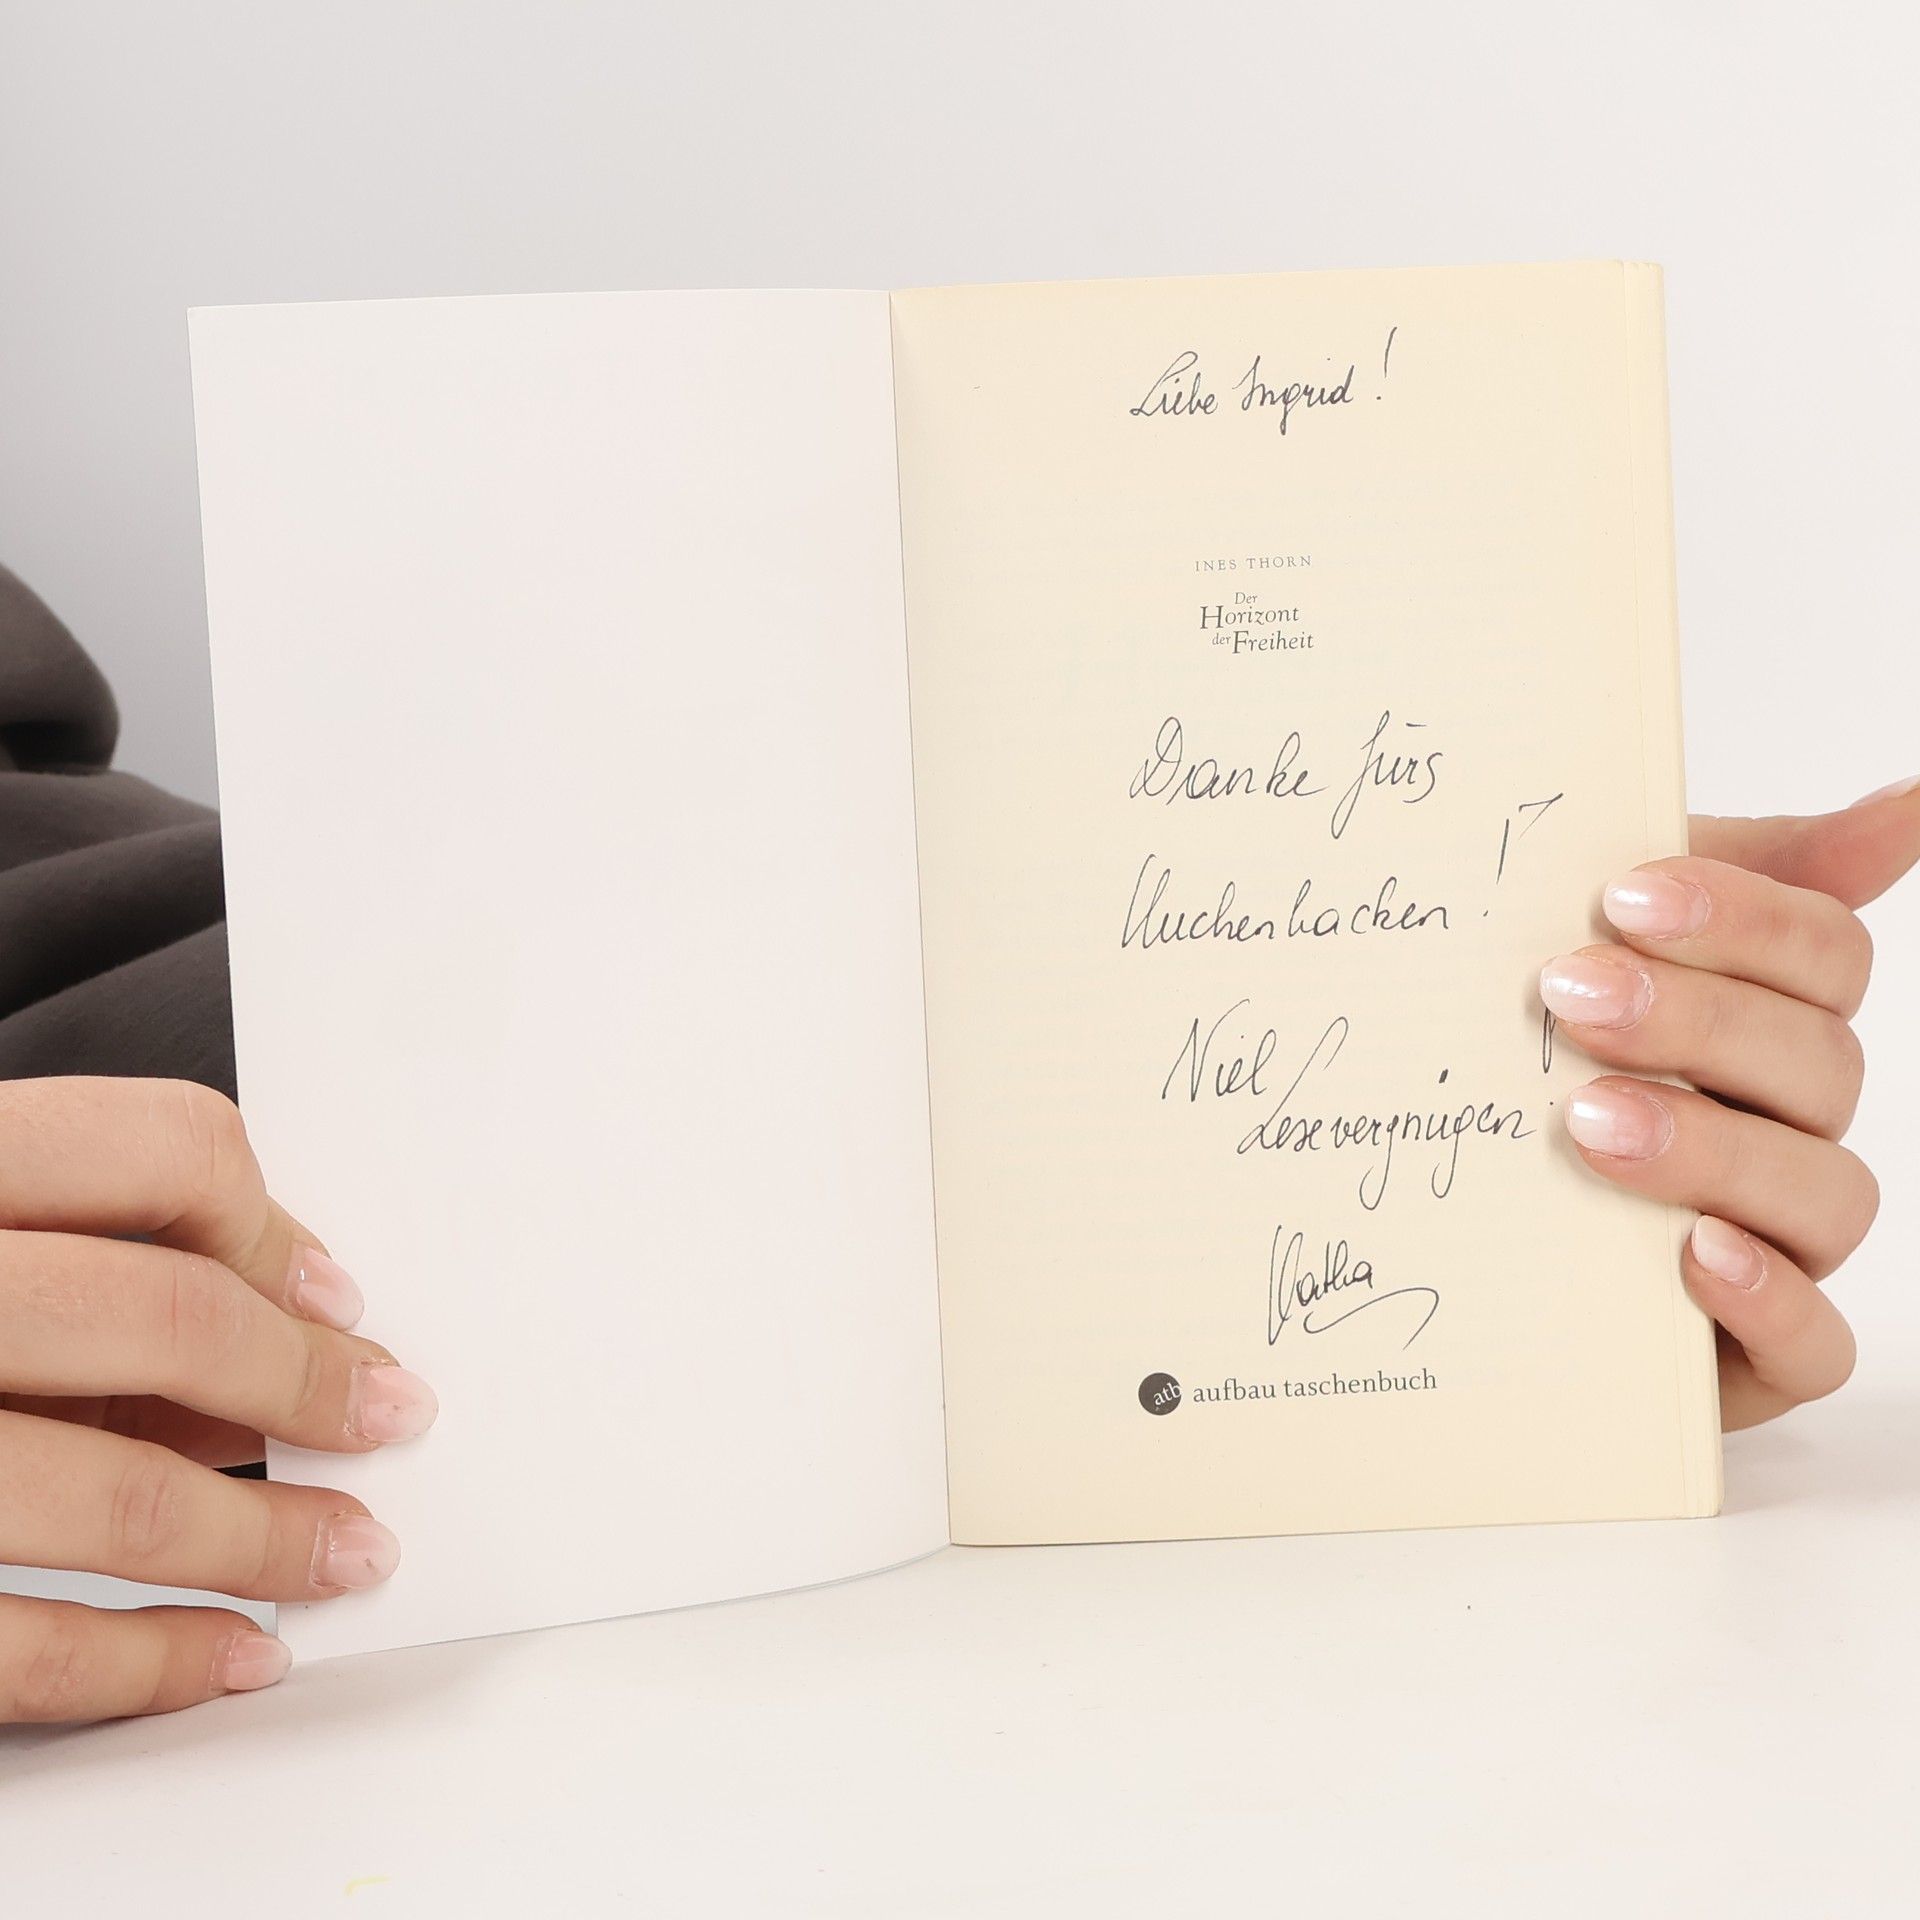 Liebe Ingrid!
INES THORN
Der
Horizont
der Freiheit
Danke fürs
Kuchenbacken!
Viel
Lesevergnügen!
Katha
atb aufbau taschenbuch